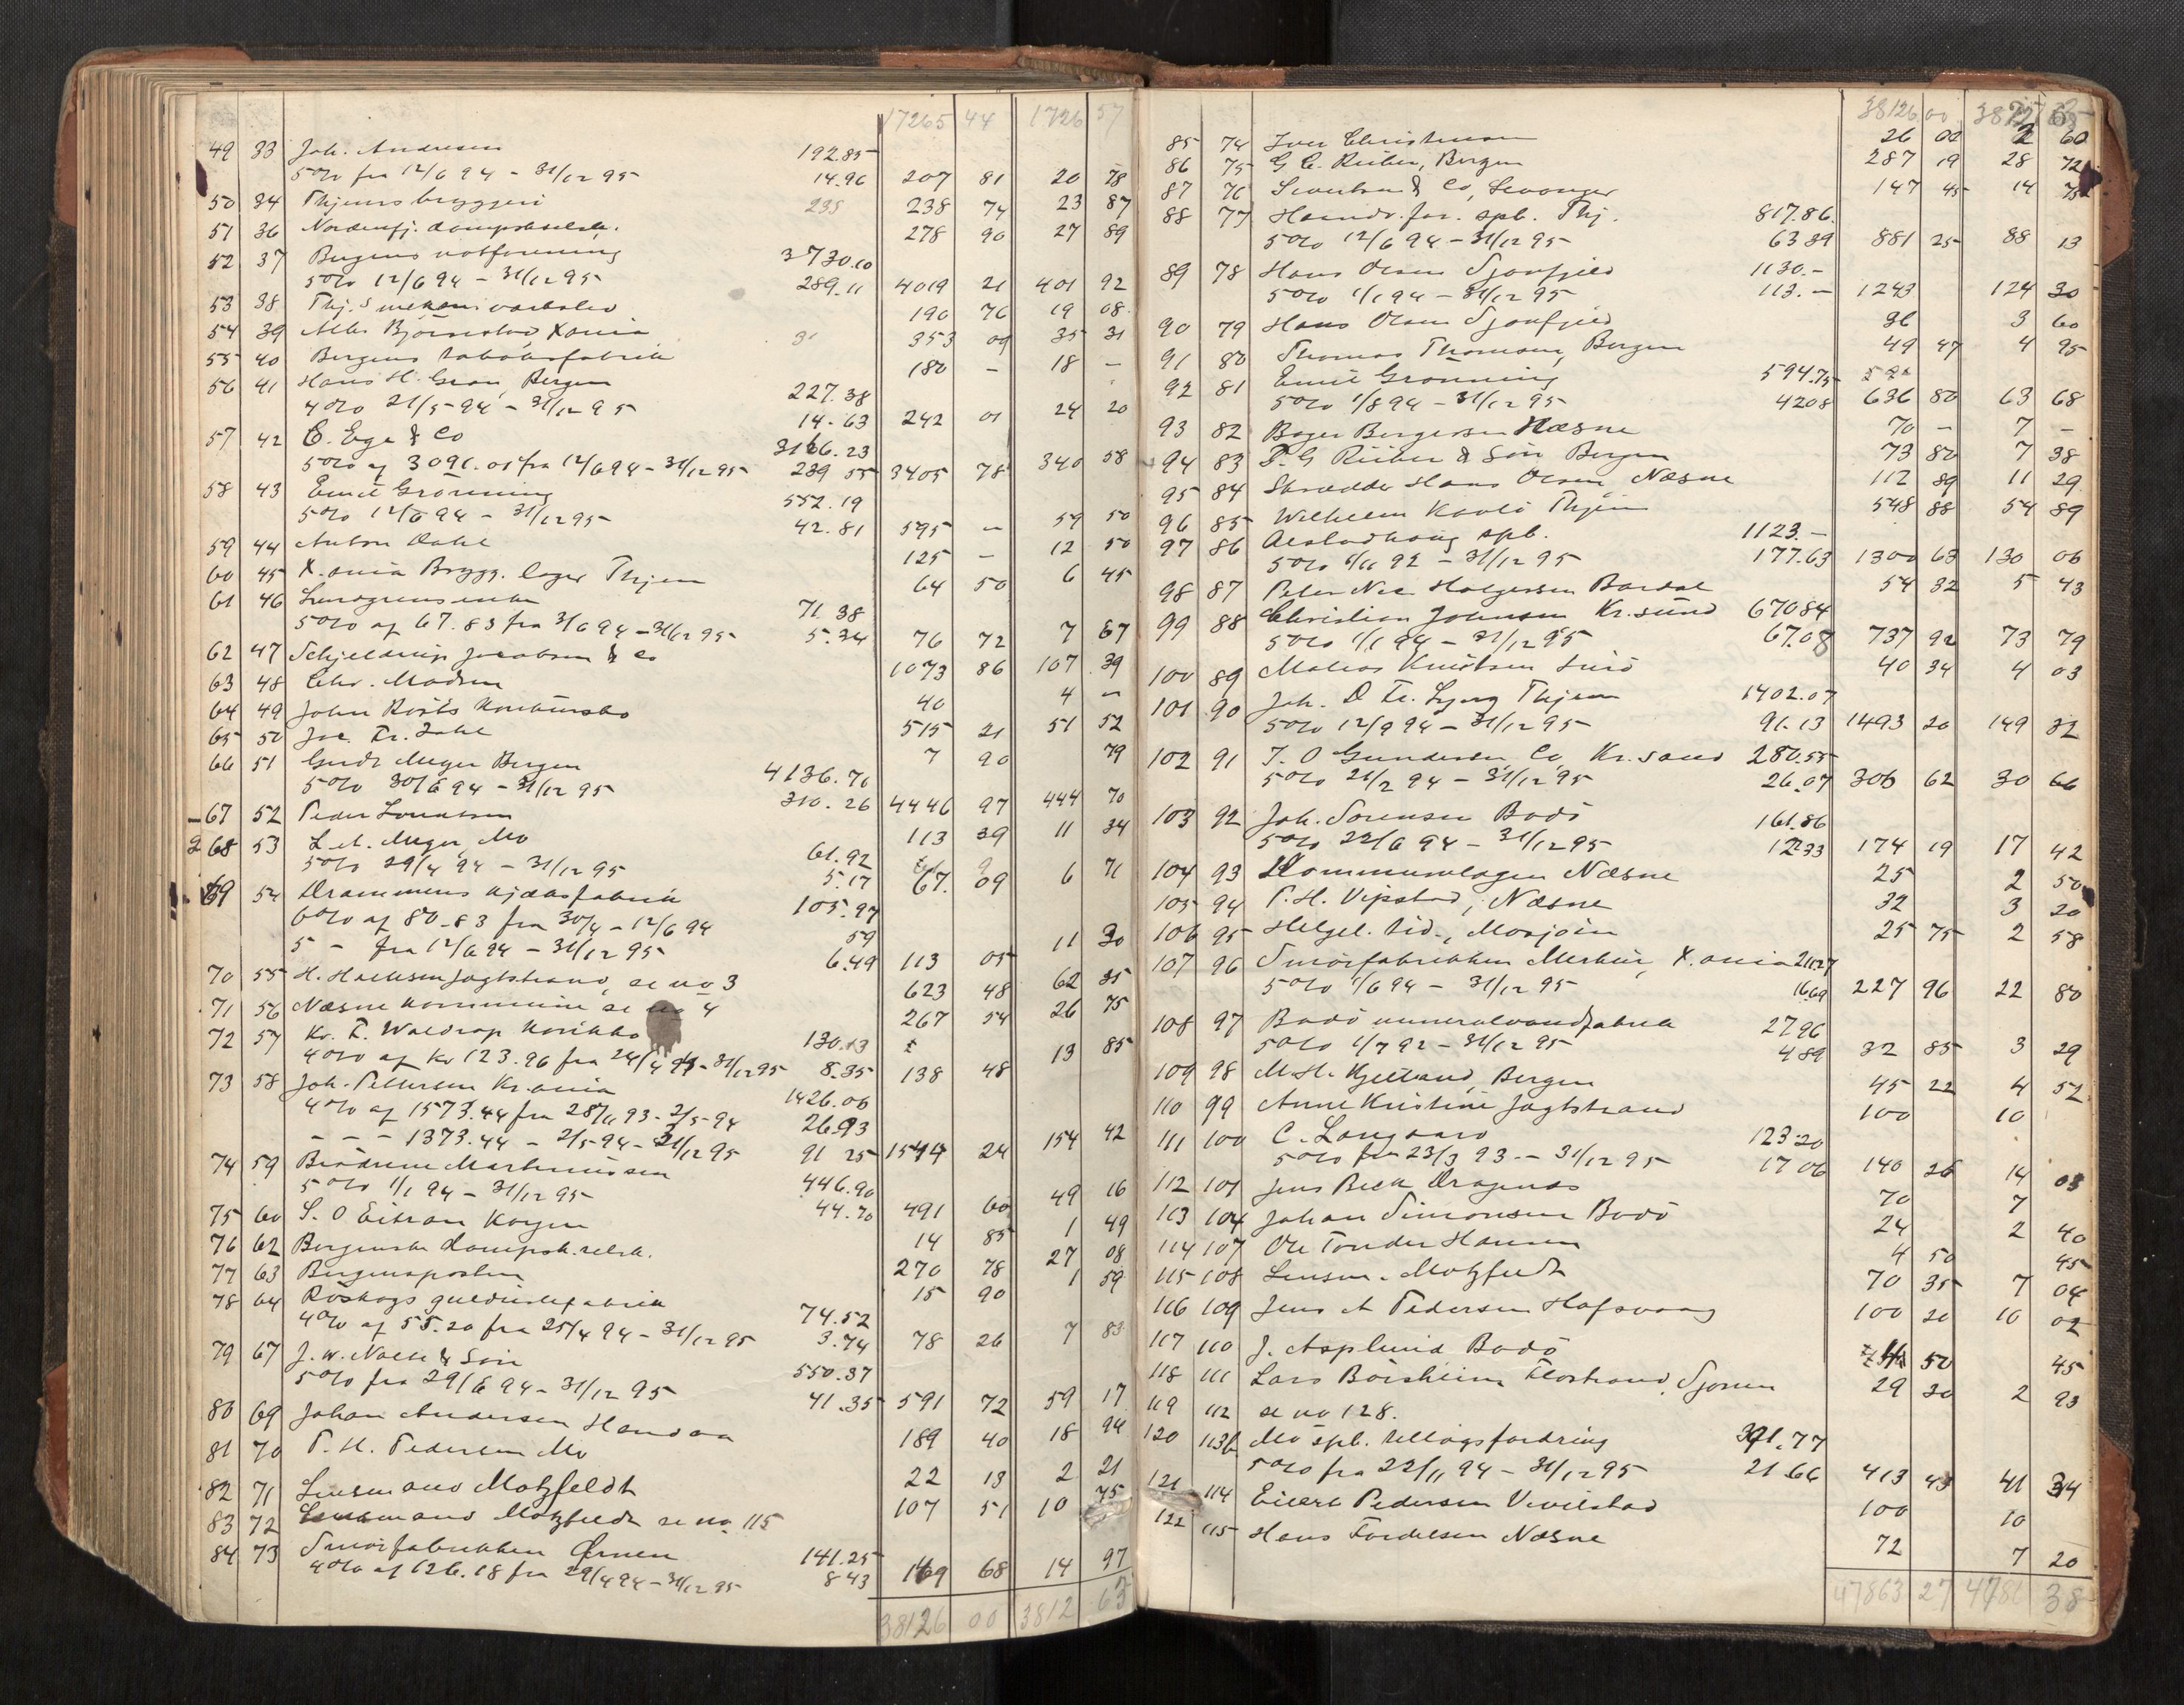 17265 44 1726 57
49 33 Joh. Andresen 192.85
5% fra 12/6 94 - 31/12 95 14.96 207 81 20 78
50 34 Thjems bryggeri 235 238 74 23 87
51 36 Nordenfj. dampskselsk. 278 90 27 89
52 37 Bergens notforening 3730.10
5% 12/6 94 - 31/12 95 289.11 4019 21 401 92
53 38 Thj.s mekan. værksted 190 76 19 08
54 39 Alb. Bjørnstad, Xania 353 09 35 31
55 40 Bergens tobaksfabrik 180 - 18 -
56 41 Hans H. Gran, Bergen 227.38
4% 21/5 94 - 31/12 95 14.63 242 01 24 20
57 42 E. Ege & Co 3166.23
5% af 3091.01 fra 12/6 94 - 31/12 95 239 55 3405 78 340 58
58 43 Emil Grønning 552.19
5% 12/6 94 - 31/12 95 42.81 595 - 59 50
59 44 Anton Dahl 125 - 12 50
60 45 X.ania Brygg. lager Thjem 64 50 6 45
61 46 Lundgrens enke 71.38
5% af 67.83 fra 3/6 94 - 31/12 95 5.34 76 72 7 67
62 47 Schjeldrup Jacobsen & Co 1073 86 107 39
63 48 Chr. Madsen 40 4 -
64 49 John Röst's konkursbo 515 21 51 52
65 50 Joc. Fr. Dahl 7 90 79
66 51 Gerdt Meyer Bergen 4136.70
5% 30/6 94 - 31/12 95 310.26 4446 97 444 70
67 52 Peder Lorentsen 113 39 11 34
68 53 L. A. Meyer, Mo 61.92
5% 29/4 94 - 31/12 95 5.17 67. 09 6 71
69 54 Drammens kjæksfabrik 105.97
6% af 80.83 fra 30/4 - 12/6 94 59
5 - fra 12/6 94 - 31/12 95 6.49 113 05 11 30
70 55 H. Hacksen Jagtstrand, se no 3 623 48 62 35
71 56 Næsne kommune se no 4 267 54 26 75
72 57 Kr. F. Waldrop 130.13
4% af Kr 123.96 fra 24/4 94 - 31/12 95 8.35 138 48 13 85
73 58 Joh. Pettersen Kr.ania 1426.06
4% af 1573.44 fra 28/11 93 - 2/5-94 26.93
- - - 1373.44 - 2/5-94 - 31/12 95 91 25 1544 24 154 42
74 59 Brødrene Martinussen 446.90
5% 1/1 94 - 31/12 95 44.70 491 60 49 16
75 60 S. O Eitran Kongen 14 85 1 49
76 62 Bergenske dampsk.selsk. 270 78 27 08
77 63 Bergensposten 15 90 1 59
78 64 Röskogs guldlistefabrik 74.52
4% af 55.20 fra 25/4 94 - 31/12 95 3.74 78 26 7 83
79 67 J. W. Nolte & Søn 550.37
5% fra 29/6 94 - 31/12 95 41.35 591 72 59 17
80 69 Johan Andersen Handaa 189 40 18 94
81 70 P. H. Pedersen Mo 22 13 2 21
82 71 Lensmand Motzfeldt 107 51 10 75
83 72 Lensmand Motzfeldt se no 115
84 73 Smörfabrikken Ørnen 141.25
4% af 126.18 fra 29/4 94 - 31/12 95 8 43 149 68 14 97
38126 00 3812 63
38126 00 3812 63
85 74 Iver Christensen 26 00 2 60
86 75 G C. Rieber, Bergen 287 19 28 72
87 76 Sivertsen & Co, Levanger 147 45 14 75
88 77 Haandv. for. spb. Thj. 817.86
5% 12/6 94 - 31/12 95 63 39 881 25 88 13
89 78 Hans Olsen Sjonfjeld 1130.-
5% 1/1 94 - 31/12 95 113.- 1243 124 30
90 79 Hans Olsen Sjonfjeld 36 3 60
91 80 Thomas Thomsen, Bergen 49 47 4 95
92 81 Emil Grønning 594.75
5% 1/8 94 - 31/12 95 4208 636 80 63 68
93 82 Boger Bergersen Næsne 70 - 7 -
94 83 P. G Rieber & Søn Bergen 73 80 7 38
95 84 Skrædder Hans Olsen Næsne 112 89 11 29
96 85 Wilhelm Kavli Thjem 548 88 54 89
97 86 Alstadhaug spb. 1123.-
5% 1/11 92 - 31/12 95 177.63 1300 63 130 06
98 87 Peter Nic Holgersen Bardal 54 32 5 43
99 88 Christian Johnsen Kr.sund 67084
5% 1/1 94 - 31/12 95 67.08 737 92 73 79
100 89 Matias Knudtsen Lurö 40 34 4 03
101 90 Joh. D Fr. Lyng Thjem 1402.07
5% 12/9 94 - 31/12 95 91.13 1493 20 149 32
102 91 T. O Gundersen, Co, Kr.sand 280.55
5% 21/2 94 - 31/12 95 26.07 306 62 30 66
103 92 Joh. Sorensen Bodö 161.86
5% 22/6 94 - 31/12 95 1233 174 19 17 42
104 93 Kommunelagen Næsne 25 2 50
105 94 P. H. Vipstad, Næsne 32 3 20
106 95 Helgel. tid., Mosjøen 25 75 2 58
107 96 Smörfabrikken Merkur, X.ania 21127
5% 1/6 94 - 31/12 95 1669 227 96 22 80
108 97 Bodö mineralvandfabrik 2796
5% 1/7 92 - 31/12 95 489 32 85 3 29
109 98 M. H. Kjelland, Bergen 45 22 4 52
110 99 Anne Kristine Jagtstrand 100 10
111 100 C. Langaard 123.20
5% fra 23/3 93 - 31/12 95 17 06 140 26 14 03
112 101 Jens Beck Dragenæs 70 7
113 104 Johan Simonsen Bodö 24 2 40
114 107 Ole Tonder Hansen 4 50 45
115 108 Lensm. Motzfeldt 70 35 7 04
116 109 Jens A Pedersen Hafsvaag 100 20 10 02
117 110 J. Asplund Bodö 4 50 45
118 111 Lars Börsheim Flostrand, Sjonen 29 30 2 93
119 112 se no 128.
120 113b Mo spb. tillægsfordring 391.77
5% fra 22/11 94 - 31/12 95 21.66 413 43 41 34
121 114 Eilert Pedersen Vevelstad 100 10
122 115 Hans Fordelsen Næsne 72 7 20
47863 27 4786 38